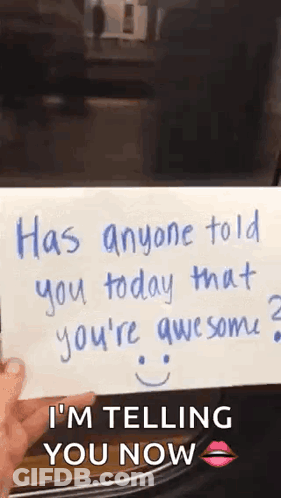 GIFDB.COM
Has anyone told
you today that
you're awesome?
I'M TELLING
YOU NOW
GIFDB.com